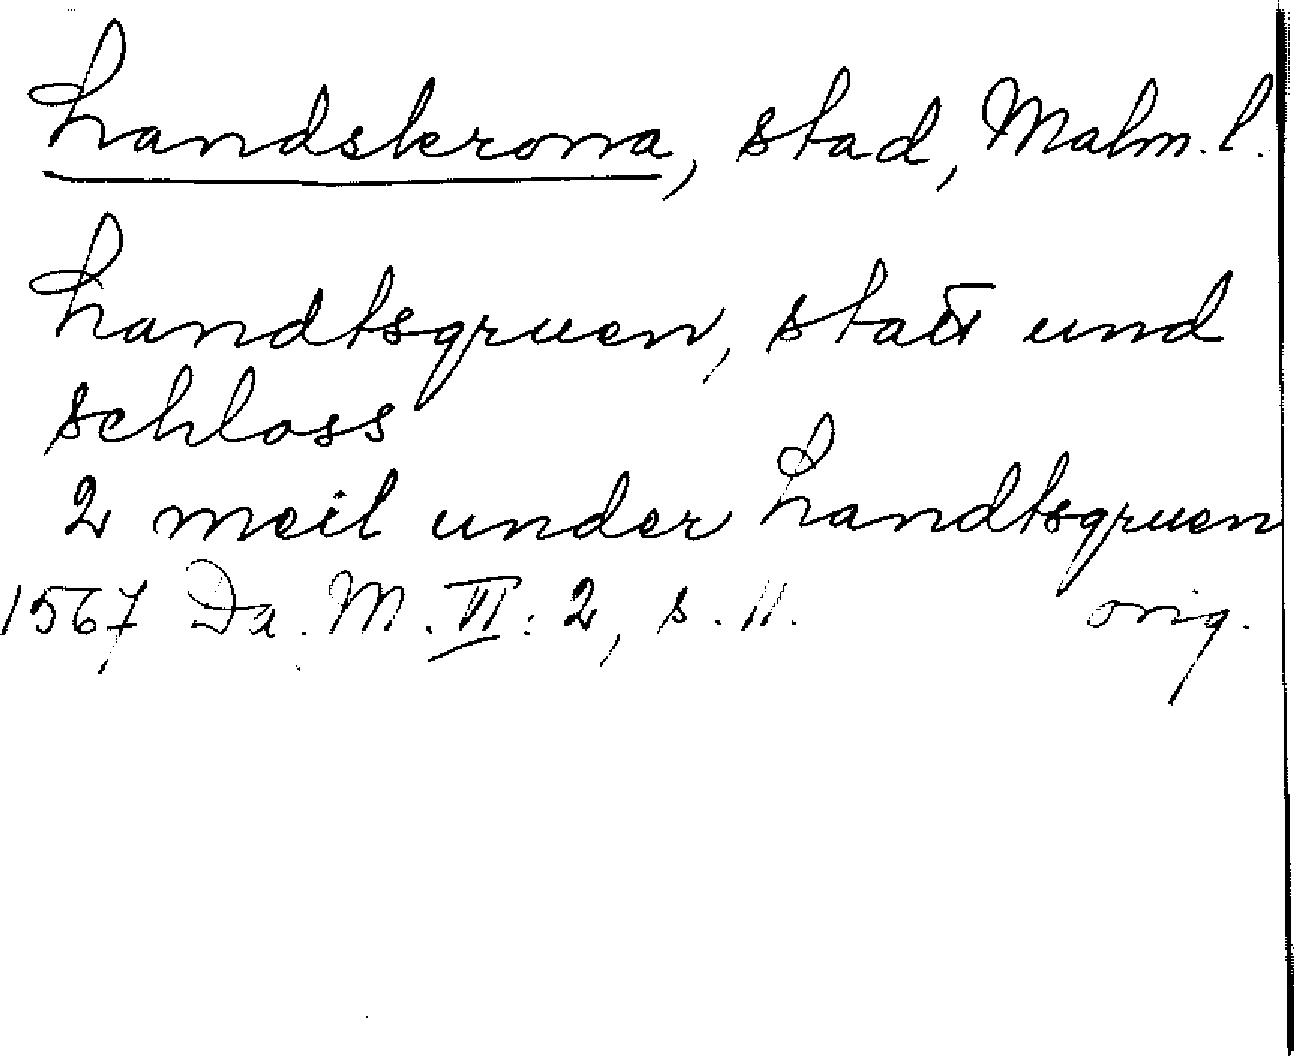 Landskrona, stad, Malm. l.
Landtsgruen, statt und
schloss
2 meil under Landtsgruen
1567 Da. M. VI: 2, s. 11. orig.